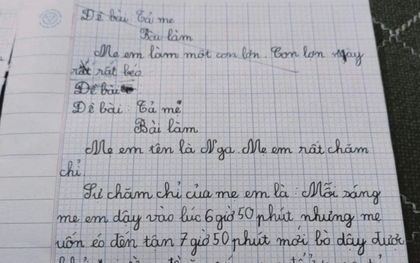 Đề bài Tả mẹ
Bài làm
Mẹ em làm một con lợn. Con lợn này
rất rất béo
Đề bài
Đề bài : Tả mẹ
Bài làm
Mẹ em tên là Nga. Mẹ em rất chăm
chỉ.
Sự chăm chỉ của mẹ em là : Mỗi sáng
mẹ em dậy vào lúc 6 giờ 50 phút nhưng mẹ
uốn éo đến tận 7 giờ 50 phút mới bò dậy được